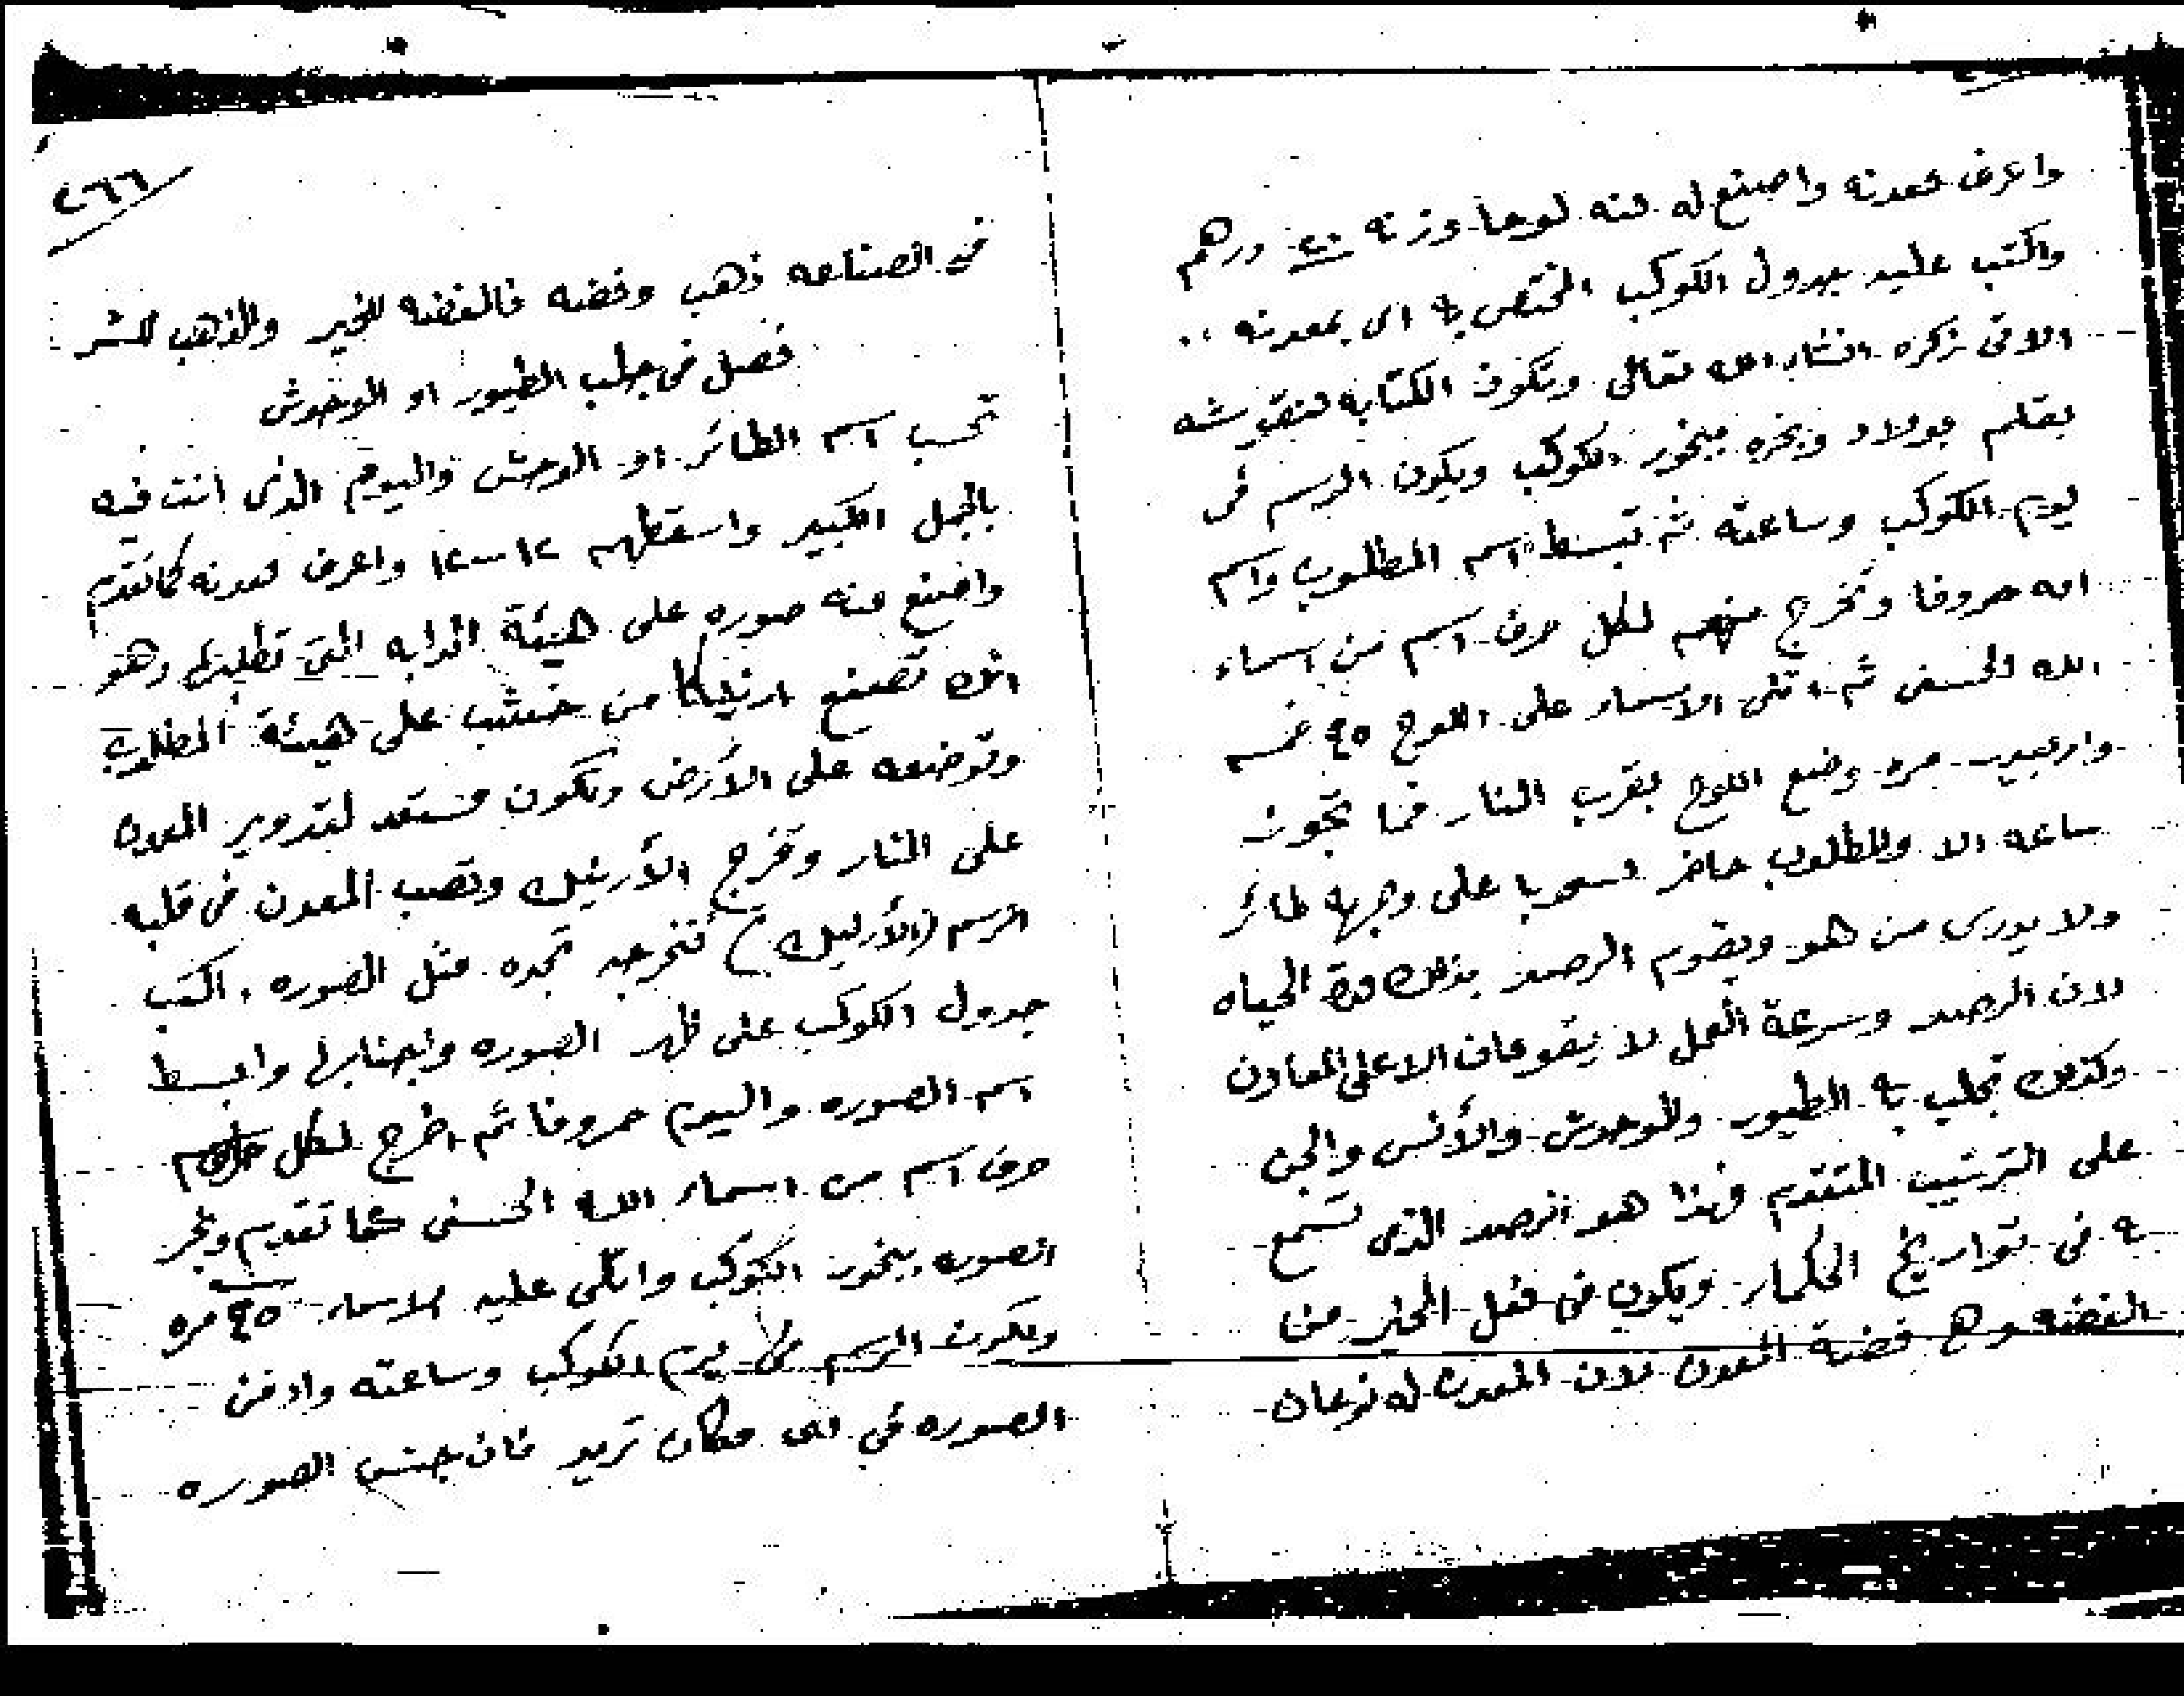 واعرف معدنه واصنع له منه لوحا وزنه ٢٠ درهم
واكتب عليه جدول الكوكب المختص به اى بمعدنه ..
الاتى ذكره انشاء الله تعالى وتكون الكتابه منقوشه
بقلم بولاد وبخره ببخور الكوكب ويكون الرسم فى
يوم الكوكب وساعته ثم تبسط اسم المطلوب واسم
امه حروفا وتخرج منهم لكل حرف اسم من اسماء
الله الحسنى ثم اتلى الاسماء على اللوح ٤٥ خمسه
واربعين مره وضع اللوح بقرب النار فما تجوز
ساعه الا والمطلوب حاضر مسحوبا على وجهه طائر
ولا يدرى من هو ويقوم الرصد بذلك مدة الحياه
لان الرصد وسرعة العمل لا يقومان الا على المعادن
وكذلك تجلب به الطيور والوحوش والأنس والجن
على الترتيب المتقدم فهذا هو الرصد الذى تسمع
به فى تواريخ الحكماء ويكون فى فعل الخير من
الفضه وهى فضة المعدن لان المعدن له نوعان
٢٦٦
فى الصناعه ذهب وفضه فالفضه للخير والذهب للشر
فصل فى جلب الطيور او الوحوش
تحسب اسم الطائر او الوحش واليوم الذى انت فيه
بالجمل الكبير واسقطهم ١٢-١٢ واعرف معدنه كما تقدم
واصنع منه صوره على هيئة الدابه التى تطلبها وهو
انك تصنع ارنيكا من خشب على هيئة المطلوب
وتوضعه على الأرض وتكون مستعد لتدوير المعدن
على النار وتخرج الأرنيك وتصب المعدن فى قلبه
الرسم (الأرنيك) فتخرجه تجده مثل الصوره . اكتب
جدول الكوكب على ظهر الصوره وابسط
اسم الصوره واليوم حروفا ثم اخرج لكل
حرف اسم من اسماء الله الحسنى كما تقدم وبخر
الصوره ببخور الكوكب واتلى عليه الاسماء ٤٥ مره
ويكون الرسم فى يوم الكوكب وساعته وادفن
الصوره فى اى مكان تريد فان جنس الصوره